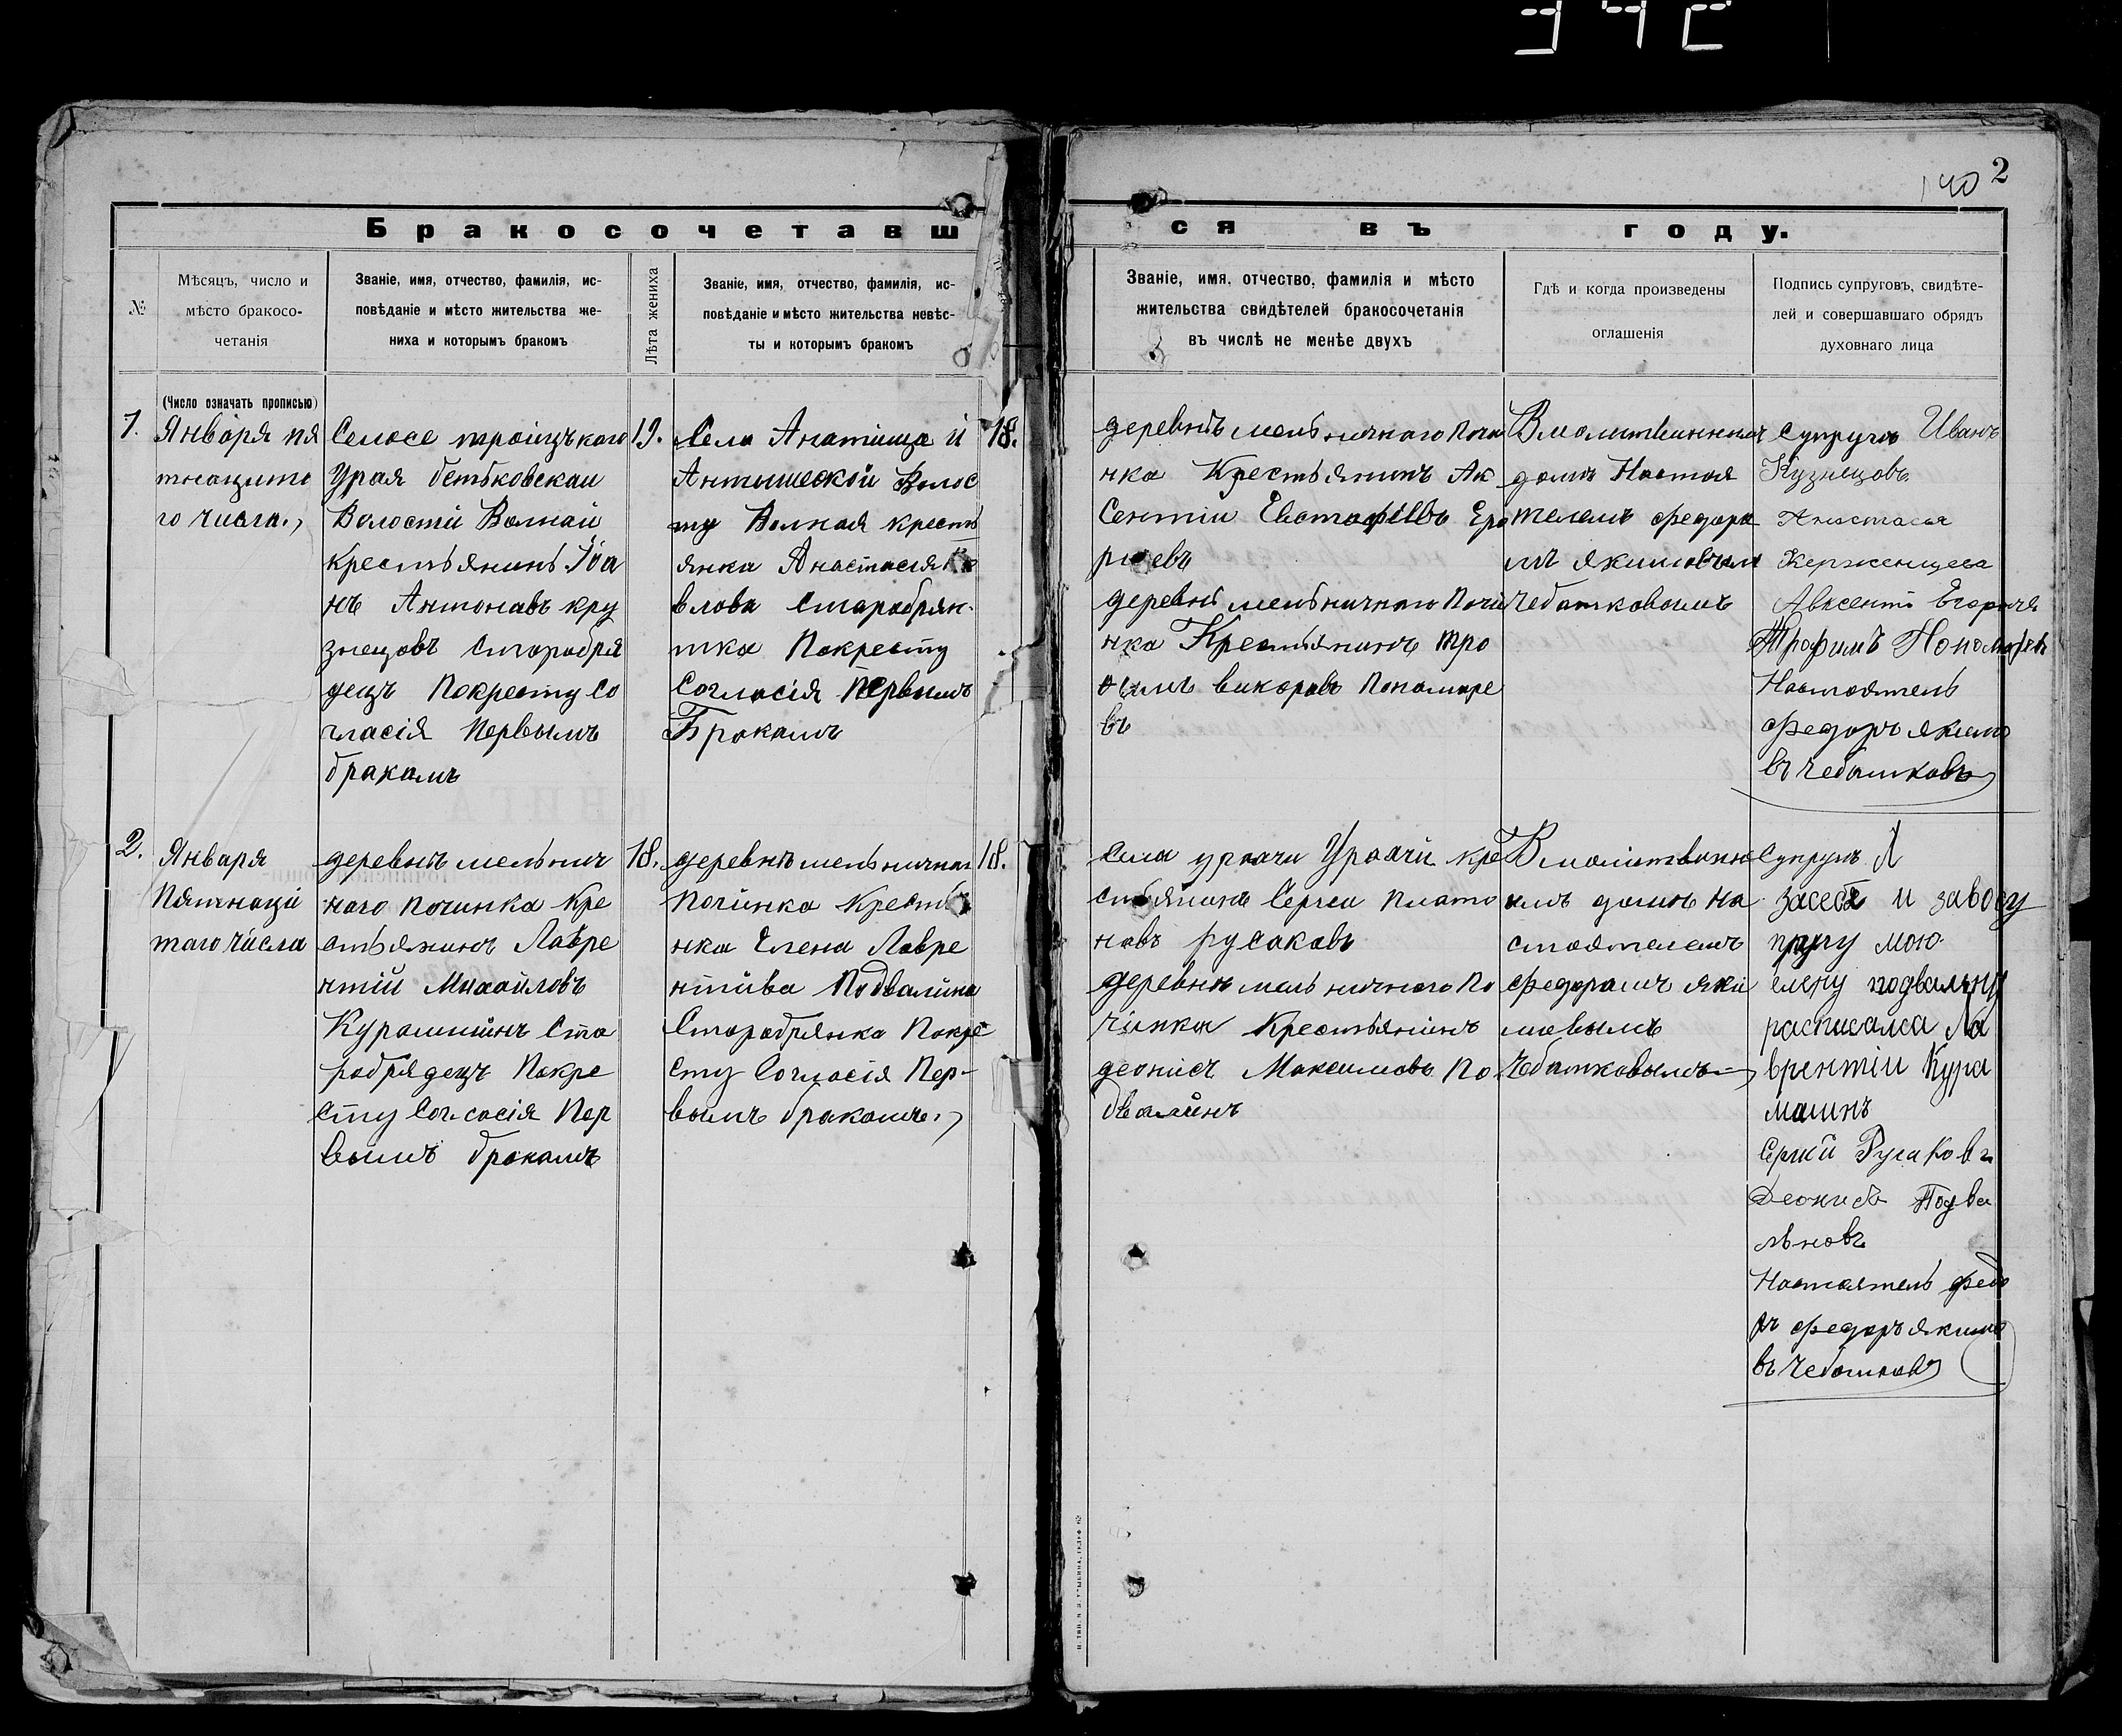 2
140
Бракосочетавш
ся въ году.
№
Мѣсяцъ, число и
мѣсто бракосо-
четанія
Званіе, имя, отчество, фамилія, ис-
повѣданіе и мѣсто жительства же-
ниха и которымъ бракомъ
Лѣта жениха
Званіе, имя, отчество, фамилія, ис-
повѣданіе и мѣсто жительства невѣс-
ты и которымъ бракомъ
Званіе, имя, отчество, фамилія и мѣсто
жительства свидѣтелей бракосочетанія
въ числѣ не менѣе двухъ
Гдѣ и когда произведены
оглашенія
Подпись супруговъ, свидѣте-
лей и совершавшаго обрядъ
духовнаго лица
(Число означать прописью)
1.
Января пя
тнацито
го числа.
троицъкого
Урая бетьковскаи
Волостӥ Волнай
крестьянинъ Іоа
нъ Антонавъ кру
знецовъ Старобря
децъ Покресту Со
гласія Первымъ
бракамъ
19.
Села
Волос
ту Волная крестъ
янка Анастасія
влова Старобрян-
тка Покресту
Согласія Первымъ
Бракамъ
18.
деревнѣ мельничнаго Почи
нка Крестьянинъ Ак
Сентіи Евстафіевъ Его
ръевъ
деревнѣ мельничнаго Почи
нка Крестьянинъ Тро
викоравъ Пономаре
въ
домѣ Настоя
телемъ федора
мъ якимовым
Чебатковымъ
Супругъ Иванъ
Кузнецовъ
Анастасья
Керженцева
Авксентiй Егорычя
Трофимъ Пономарев
Настоятель
федоръ якимо
въ чебатковъ
2.
Января
Пятнаци
таго числа
деревнѣ мельнич
наго Починка Кре
стьянинъ Лавре
нтій Михайловъ
Курамшинъ Ста
робрядецъ Покре
сту Согласія Пер
вымъ бракамъ
18.
деревнѣ мельничнаг
Починка Крестья
нка Елена Лавре
нтіива Подвалина
Старобрянка Покре
сту Согласія Пер-
вымъ бракамъ.
18.
Села Ураачи кре
стьянинъ Сергеи Плато
новъ русаковъ
деревни мельничнаго По
чинка Крестьянинъ
деонисъ Максимовъ По
двалинъ
Вмолитвенно
мъ домѣ На
стоятелемъ
федорамъ яки
мовымъ
Чебатковымъ
Супругъ Я
засебя и завосу
пругу мою
елену подвалину
расписалса Ла
врентіи Кура
машнъ
Сергий Русаковъ
Деонисъ Подва
льновъ
Настаятель федо
ръ федоръ якимо
въ чебатковъ